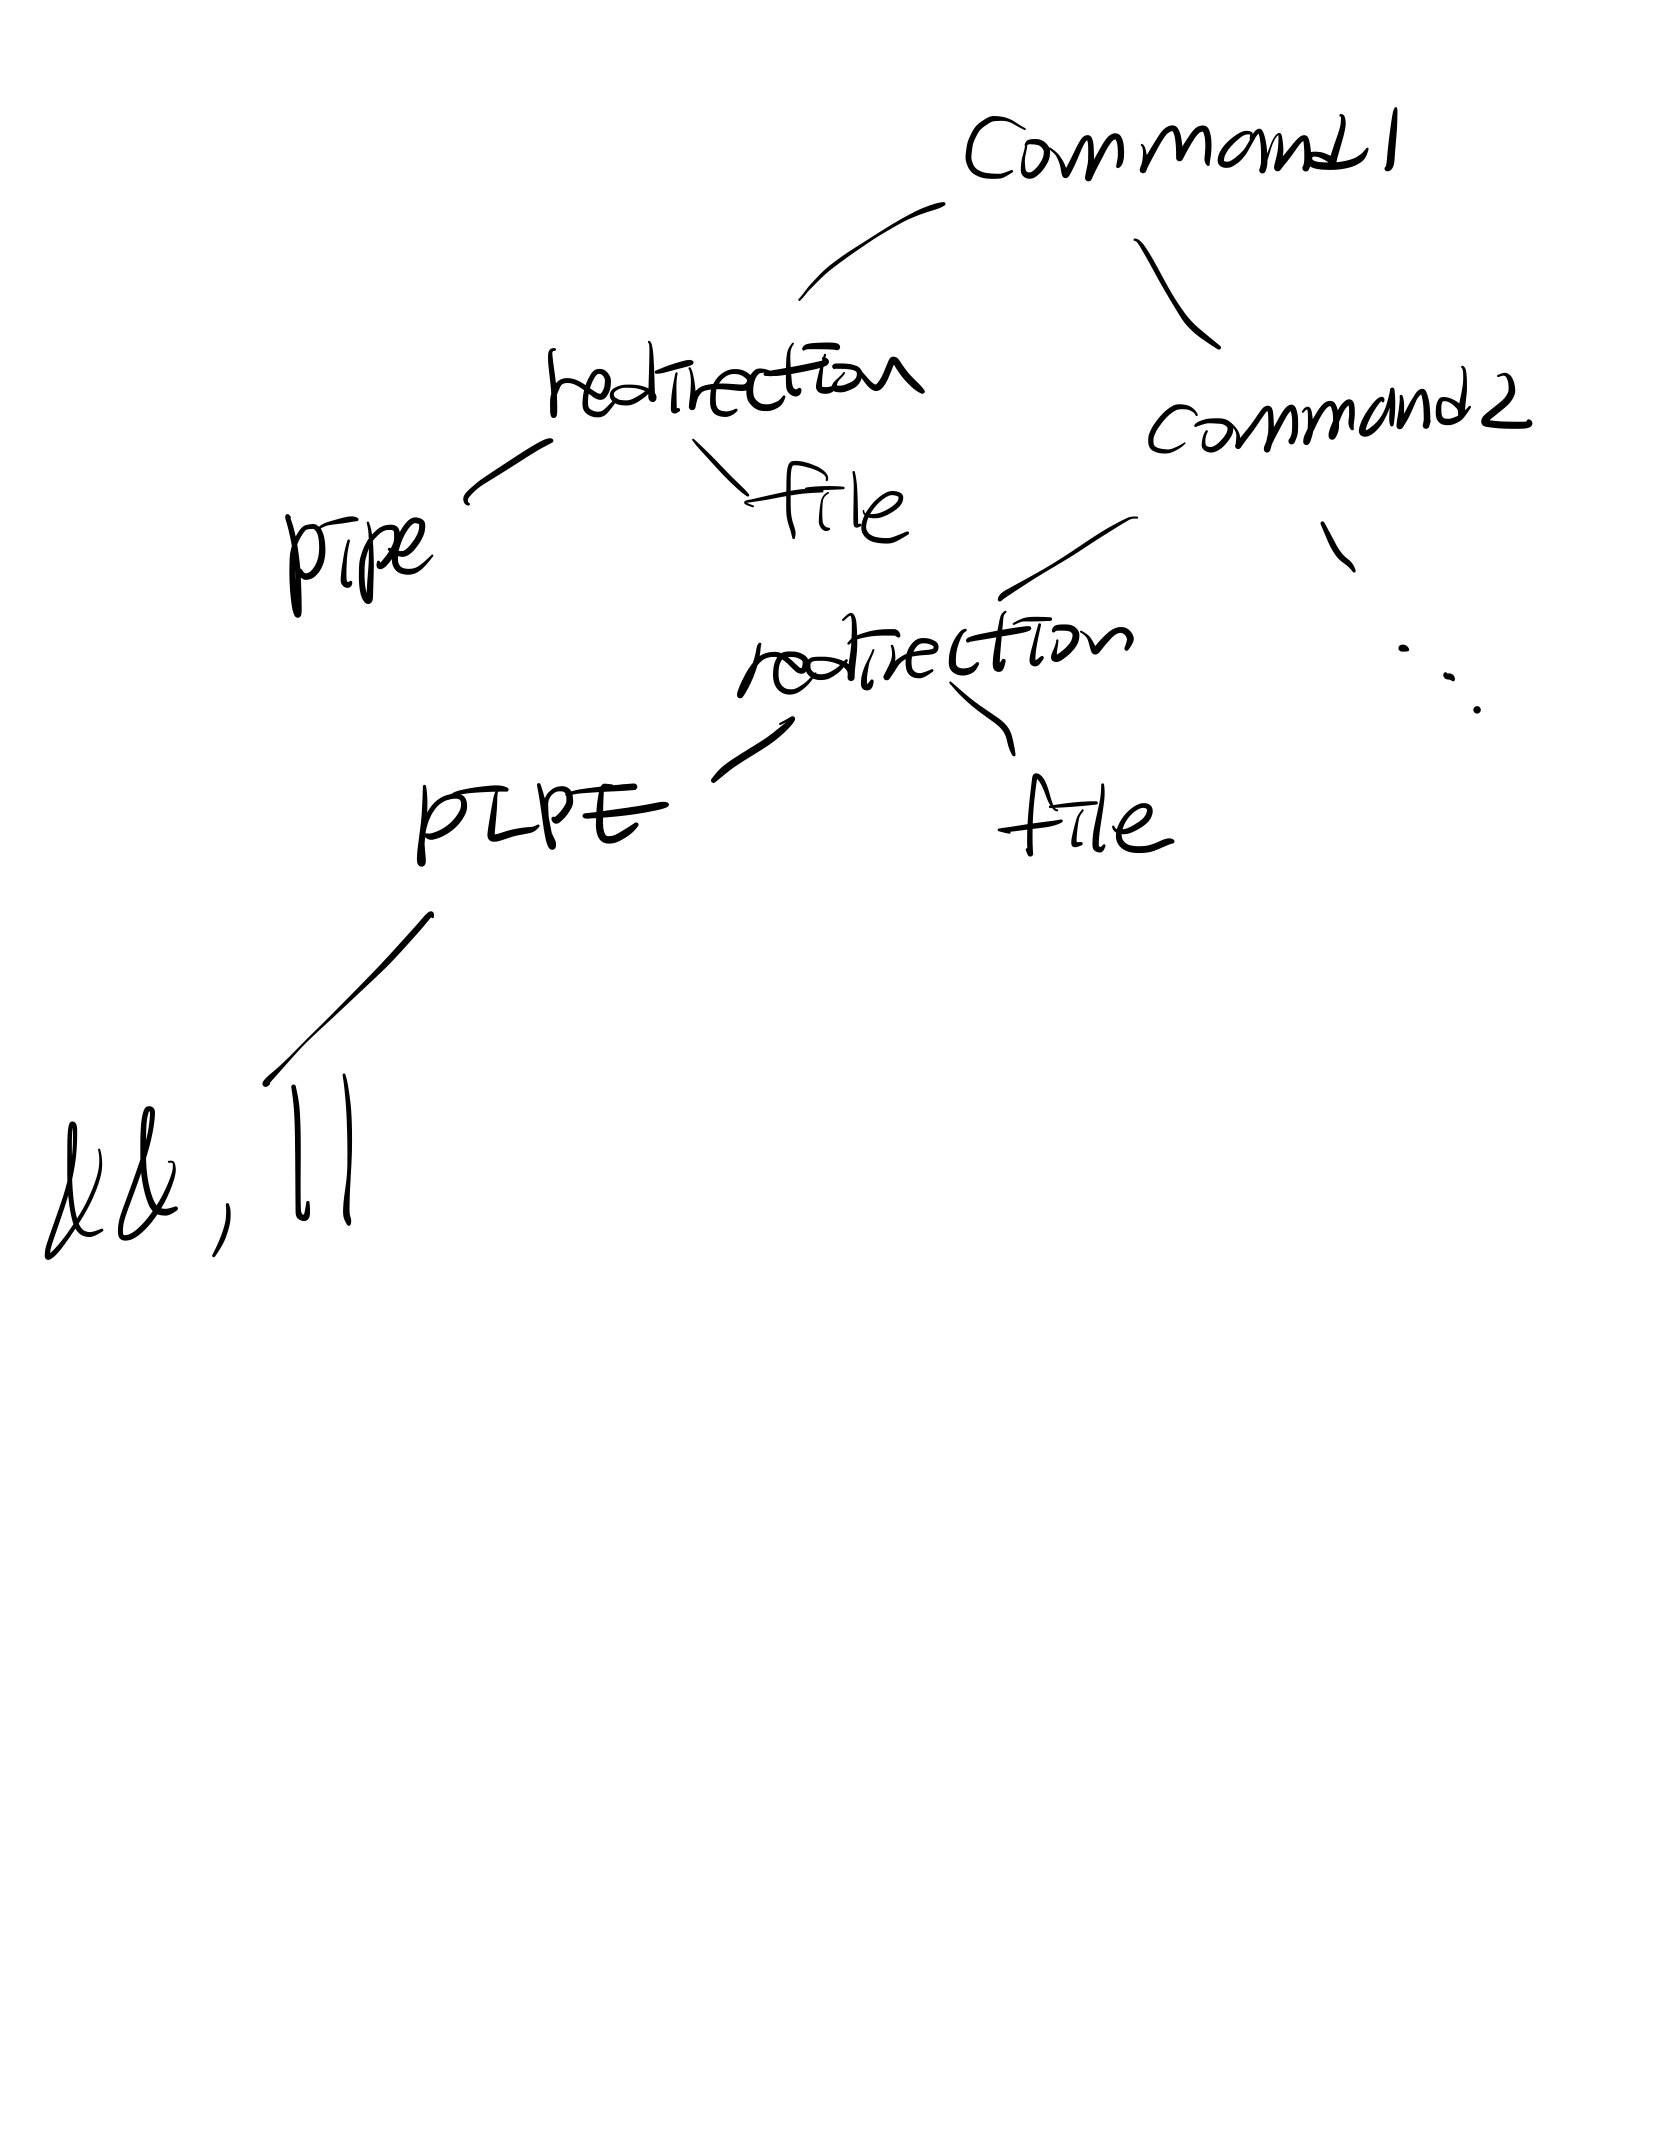 Command1
redirection
command2
pipe
file
redirection
PIPE
file
&&, ||